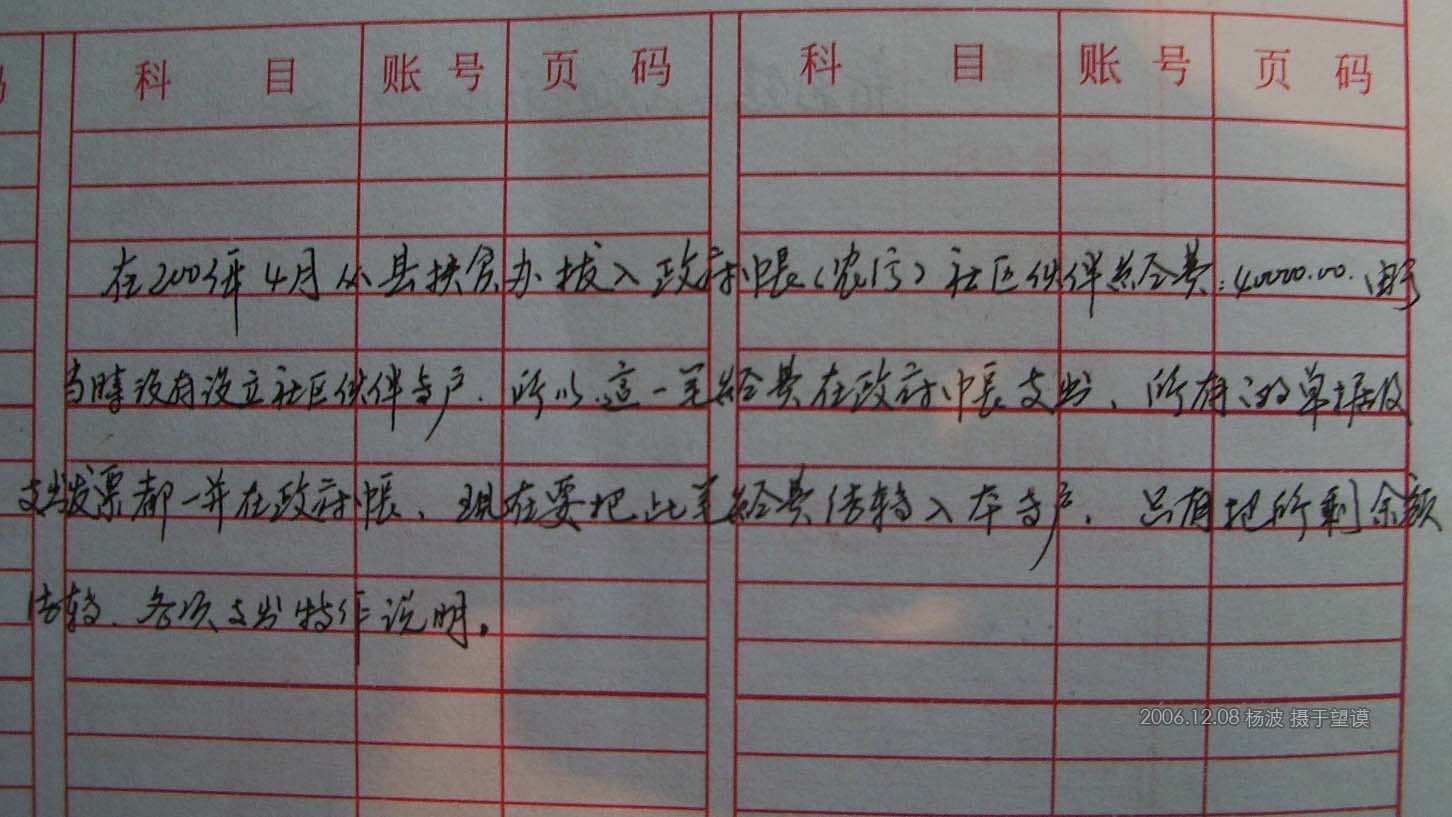 科 目 账号 页码 科 目 账号 页码
在200 年4月从县扶贫办拨入政府帐(农行)社区伙伴总经费:40000.00.由于
当时没有设立社区伙伴专户.所以.这一笔经费在政府帐支出、所有的单据及
支出发票都一并在政府帐、现在要把此笔经费结转入本专户.只有把所剩余额
结转.各项支出特作说明。
2006.12.08 杨波 摄于望谟